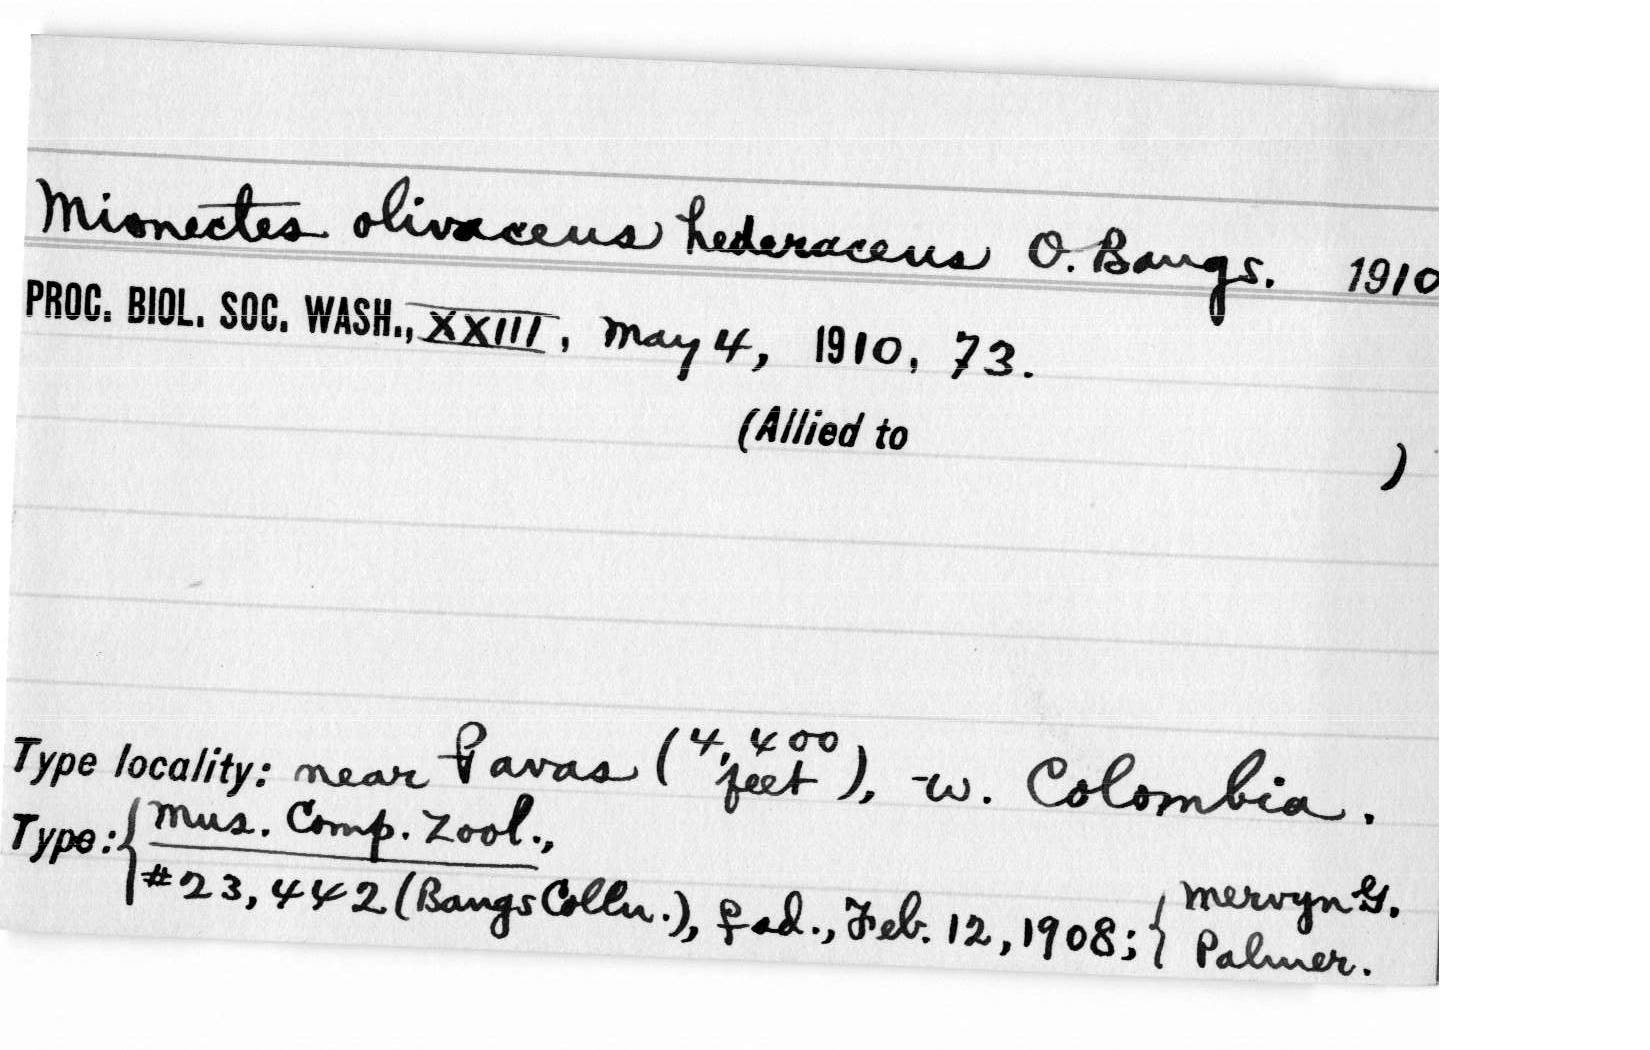 Mionectes olivaceus hederaceus O. Bangs. 1910
PROC. BIOL. SOC. WASH., XXIII, May 4, 1910, 73.
(Allied to )
Type locality: near Pavas (4,400 feet), w. Colombia.
Type: { Mus. Comp. Zool.,
#23,442 (Bangs Colln.), ♀ ad., Feb. 12, 1908; { Mervyn G. Palmer.